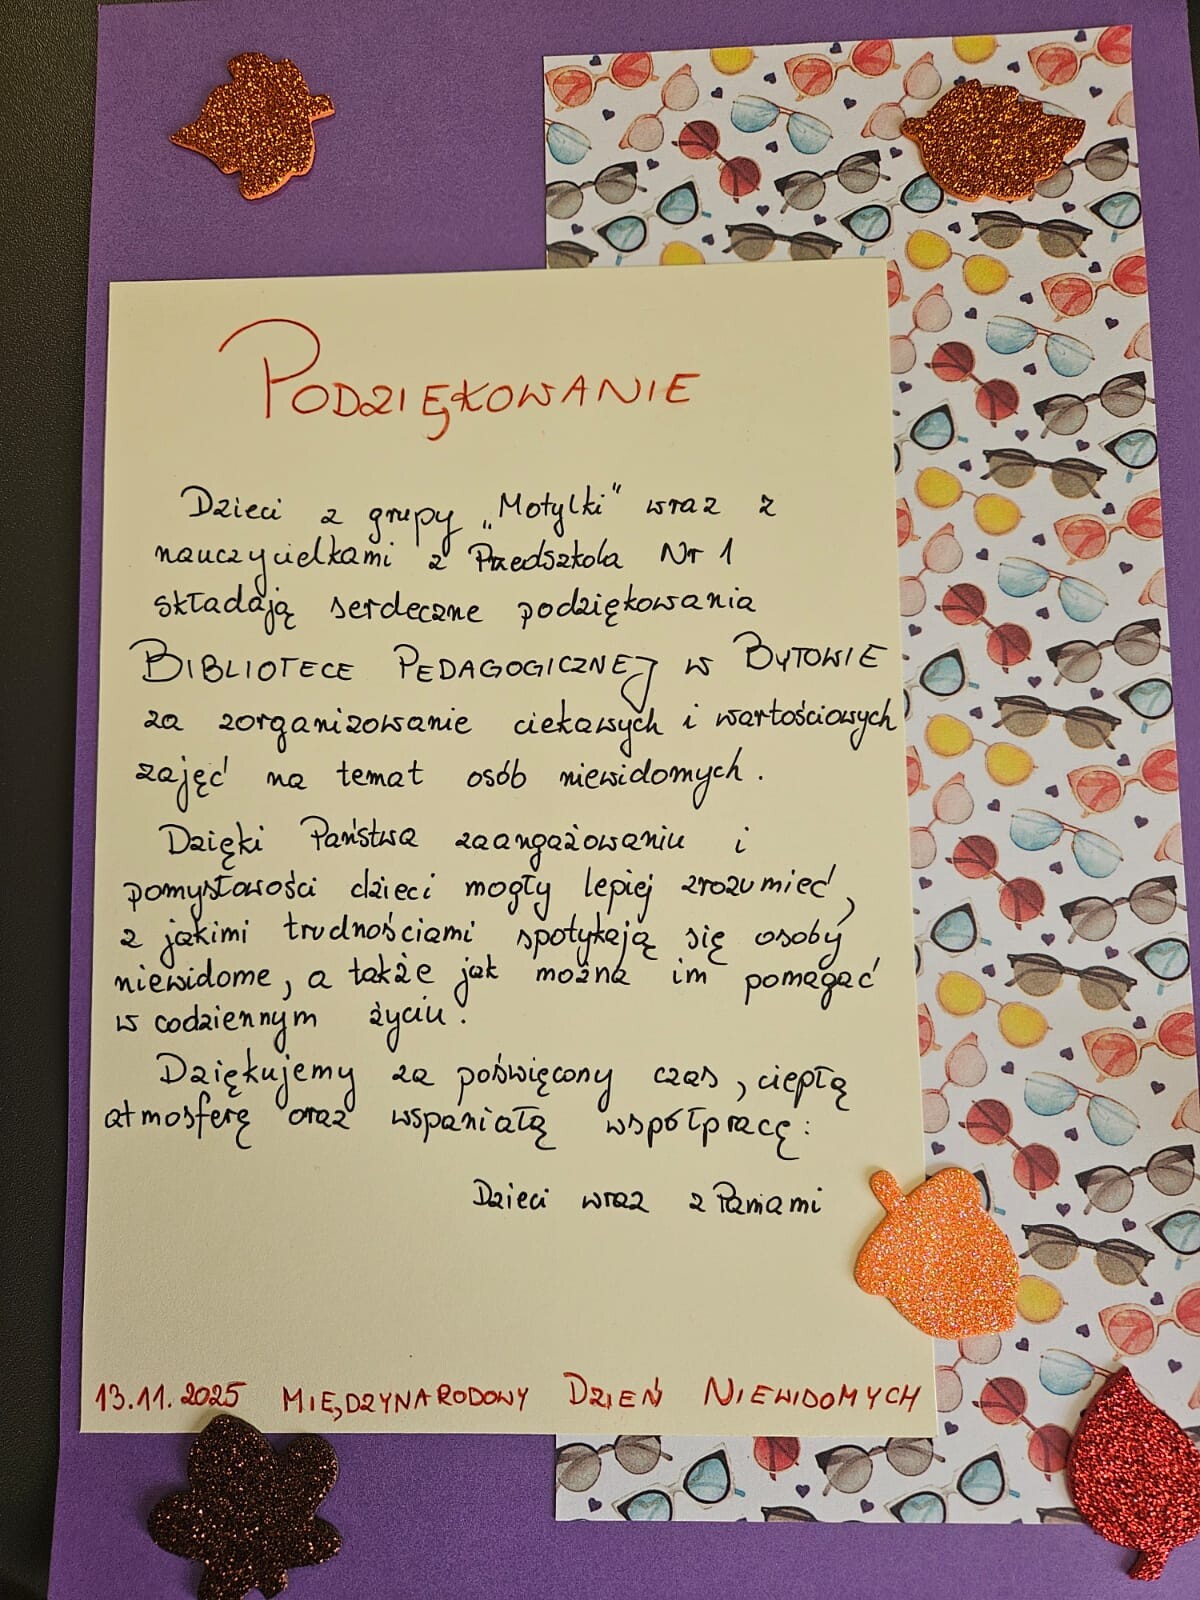 PODZIĘKOWANIE
Dzieci z grupy „Motylki" wraz z
nauczycielkami z Przedszkola Nr 1
składają serdeczne podziękowania
BIBLIOTECE PEDAGOGICZNEJ w BYTOWIE
za zorganizowanie ciekawych i wartościowych
zajęć na temat osób niewidomych.
Dzięki Państwa zaangażowaniu i
pomysłowości dzieci mogły lepiej zrozumieć,
z jakimi trudnościami spotykają się osoby
niewidome, a także jak można im pomagać
w codziennym życiu.
Dziękujemy za poświęcony czas, ciepłą
atmosferę oraz wspaniałą współpracę:
Dzieci wraz z Paniami
13.11.2025 MIĘDZYNARODOWY DZIEŃ NIEWIDOMYCH